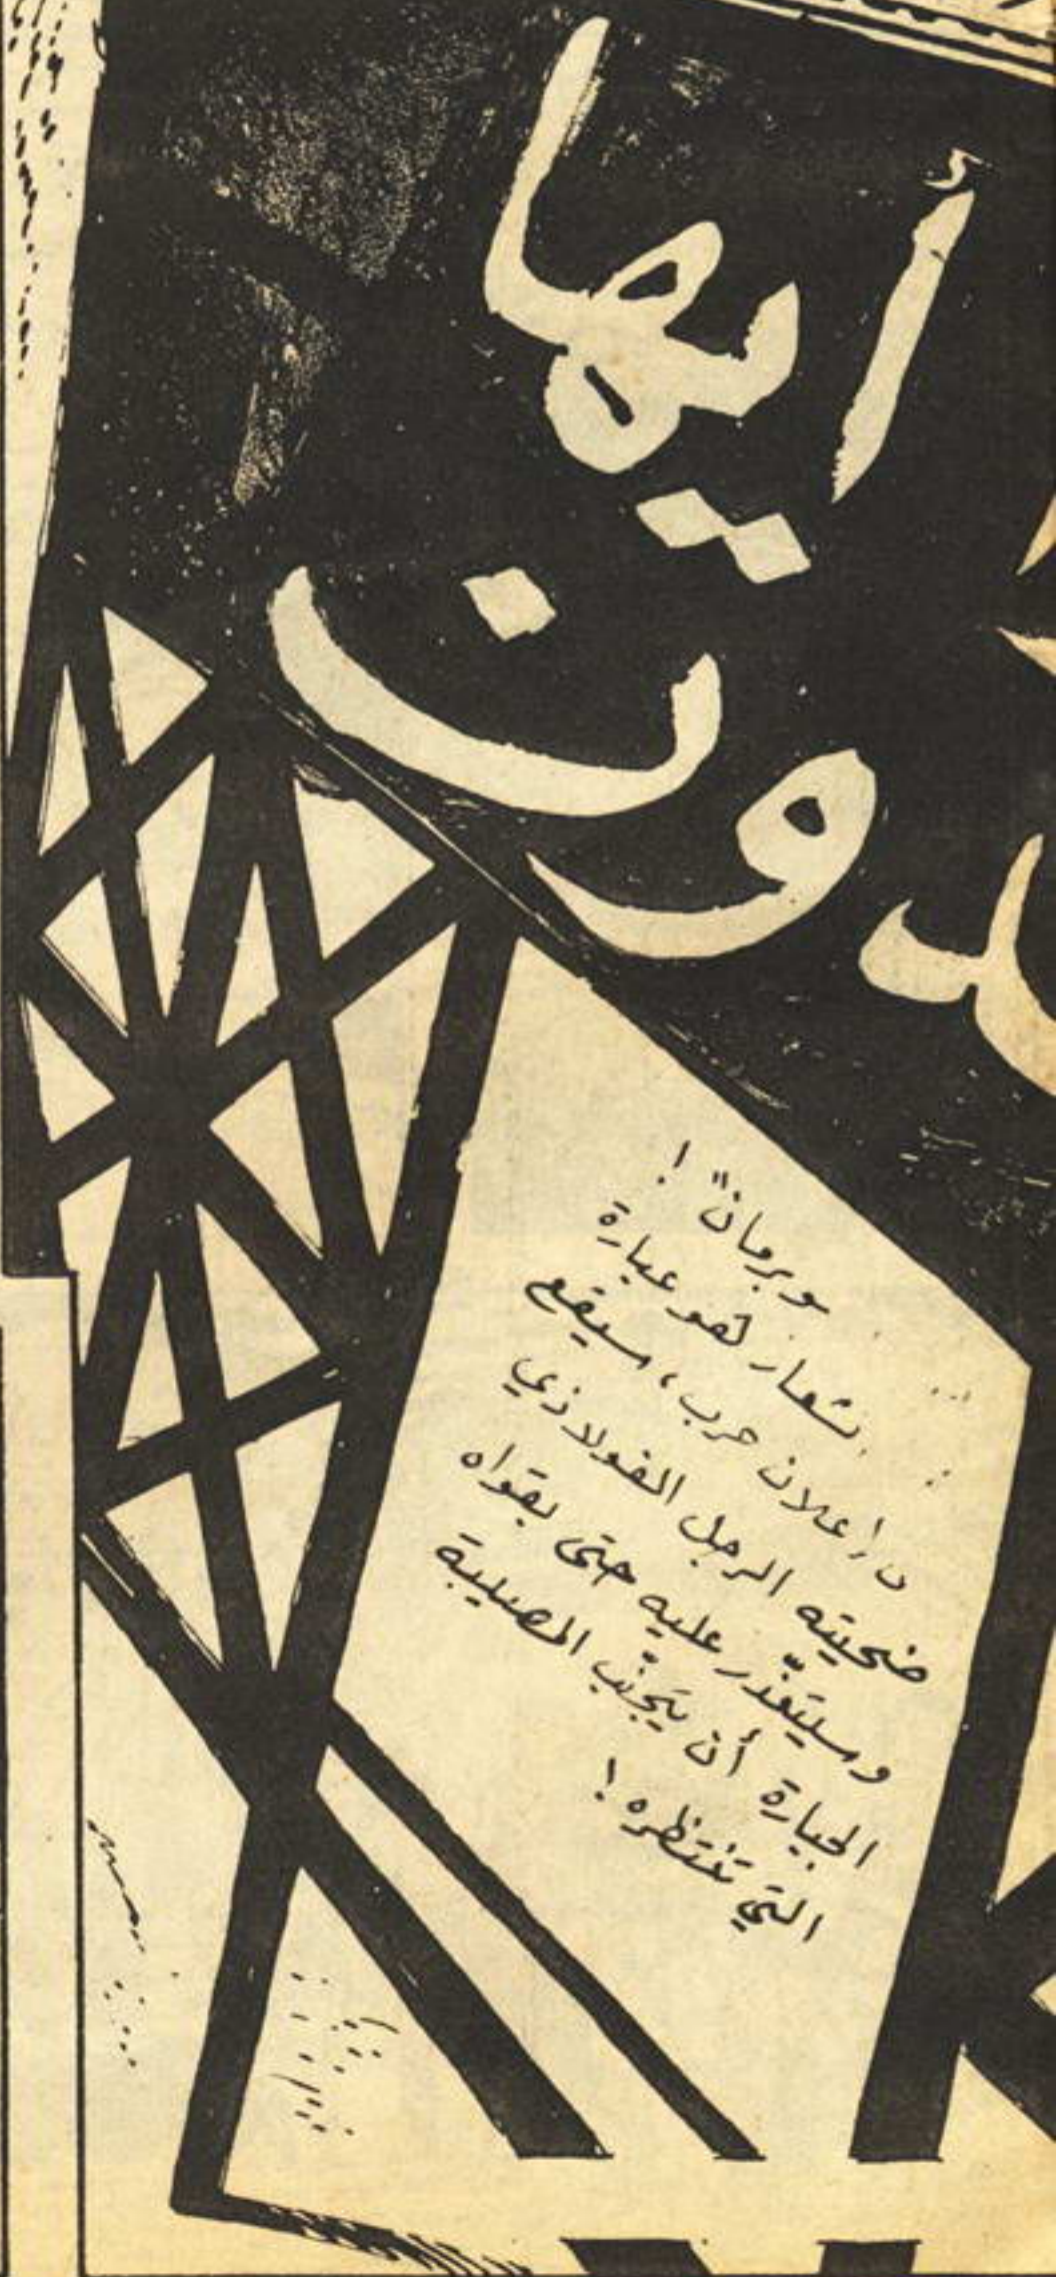 أيها
دون
وبرمان" !
شعار لهو عبارة
ن إعلان حرب، سيقع
ضحيته الرجل الفولاذي
وسيتعذّر عليه حتى بقواه
الجبارة أن يتجنّب المصيبة
التي تنتظره !